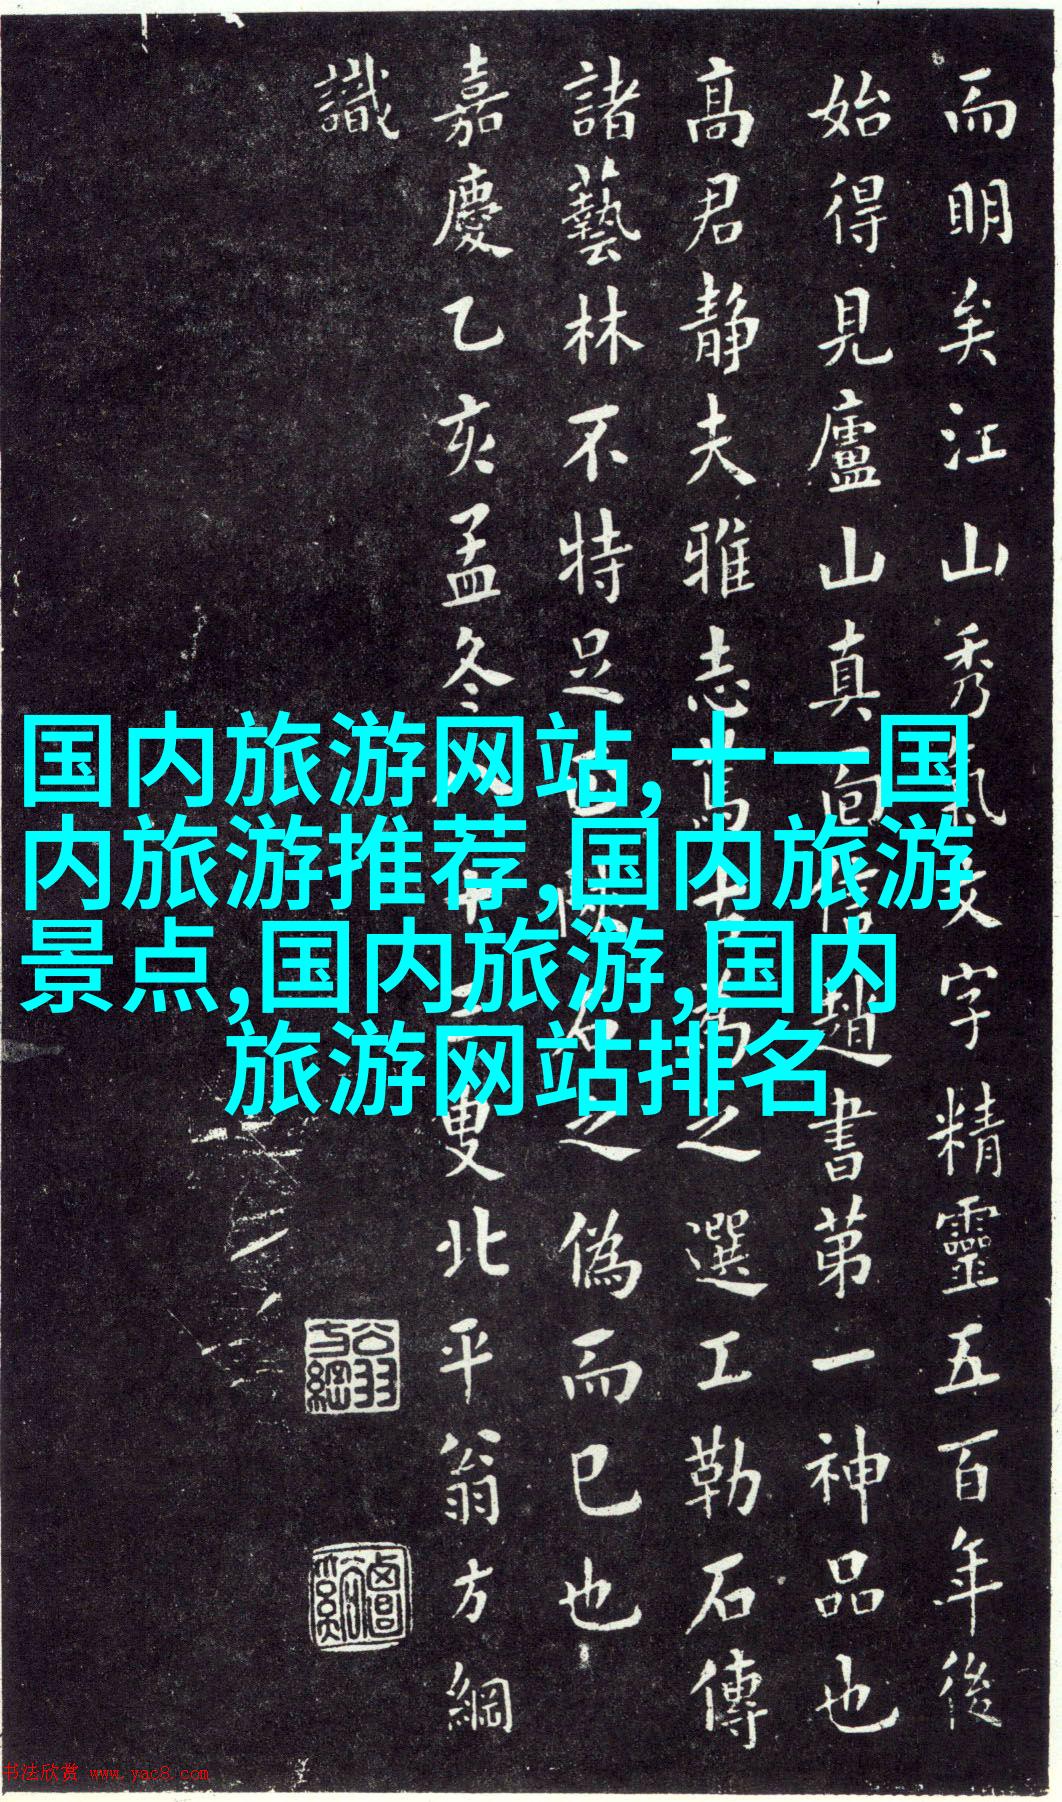 而明矣江山秀氣文字精靈五百年後
始得見廬山真面 趙書第一神品也
髙君静夫雅志篤 為之選工勒石傳
諸藝林不特足 之偽而已也
嘉慶乙亥孟冬八十三叟北平翁方綱
識
翁方綱
国内旅游网站,十一国
内旅游推荐,国内旅游
景点,国内旅游,国内
旅游网站排名
书法欣赏 www.yac8.com